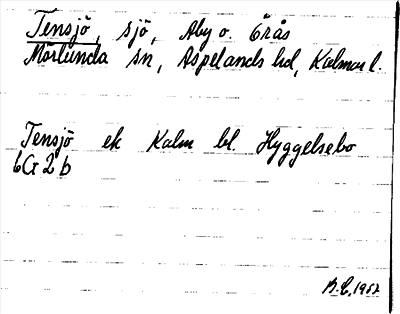 Tensjö, sjö, Åby o. Örås
Mörlunda sn, Aspelands hd, Kalmar l.
Tensjö ek Kalm bl. Hyggelsebo
6G2b
B.E. 1952